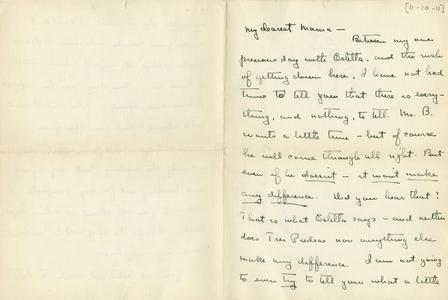 [11-10-11]
My dearest Mama —
Between my one
precious day with Estella, and the rush
of getting down here, I have not had
time to tell you that there is every-
thing, and nothing, to tell. Mr. B.
wants a little time — but of course
he will come through all right. But
even if he doesn't — it wont make
any difference. Did you hear that?
That is what Estella says — and neither
does Tres Piedras nor anything else
make any difference. I am not going
to even try to tell you what a little